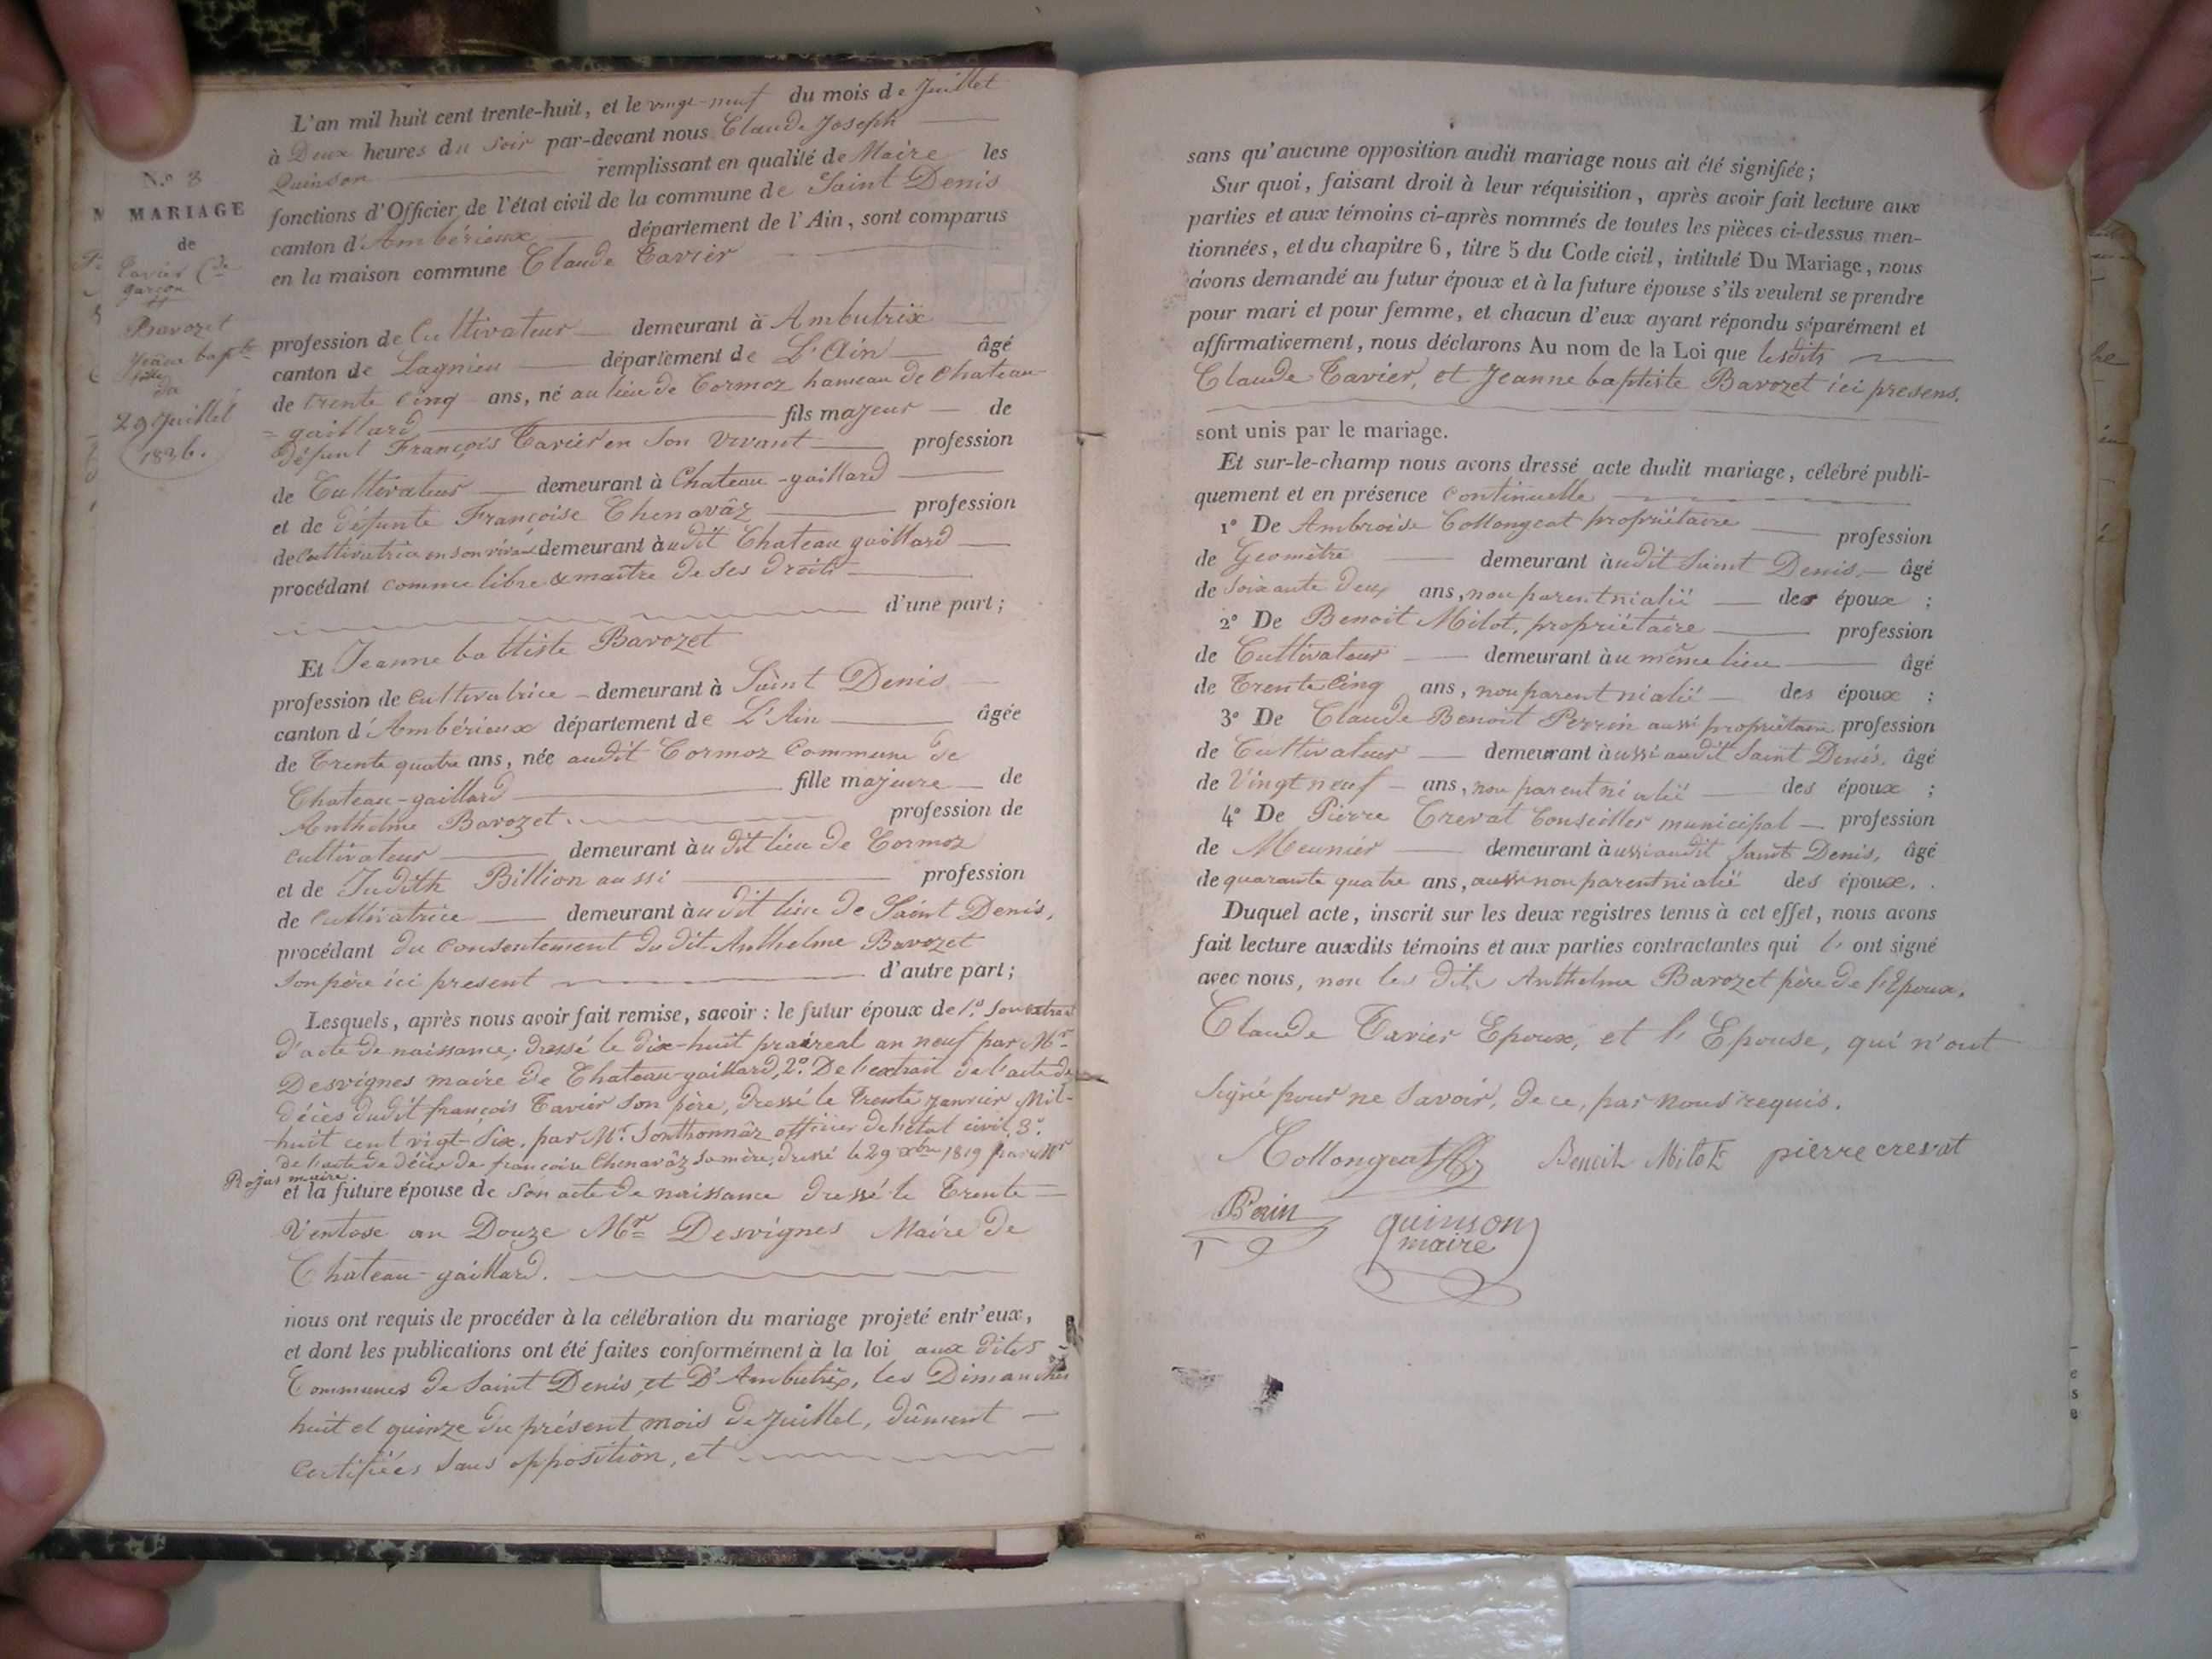 N.º 8
MARIAGE
de
Tavier Cde
garçon
Bavozet
Jeanne bapte
fille
du
29 Juillet
1838.
L'an mil huit cent trente-huit, et le vingt-neuf du mois de Juillet
à Deux heures du soir par-devant nous Claude Joseph
Quinson remplissant en qualité de Maire les
fonctions d'Officier de l'état civil de la commune de Saint Denis
canton d'Ambérieux département de l'Ain, sont comparus
en la maison commune Claude Tavier
profession de Cultivateur demeurant à Ambutrix
canton de Lagnieu département de L'Ain âgé
de trente cinq ans, né au lieu de Cormoz hameau de Chateau-
= gaillard fils majeur de
défunt François Tavier en son vivant profession
de Cultivateur demeurant à Chateau-gaillard
et de défunte Françoise Chenavâz profession
de Cultivatrice en son vivant demeurant àudit Chateau gaillard
procédant comme libre & maître de ses droits
d'une part;
Et Jeanne battiste Bavozet
profession de cultivatrice demeurant à Saint Denis
canton d'Ambérieux département de L'Ain âgée
de Trente quatre ans, née audit Cormoz Commune de
Chateau-gaillard fille majeure de
Anthelme Bavozet profession de
cultivateur demeurant àu dit lieu de Cormoz
et de Judith Billion aussi profession
de Cultivatrice demeurant àu dit lieu de Saint Denis,
procédant du Consentement du dit Anthelme Bavozet
son père ici present d'autre part;
Lesquels, après nous avoir fait remise, savoir : le futur époux de 1.º Son extrait
d'acte de naissance, dressé le dix-huit prairéal an neuf par Mr
Desvignes maire de Chateau-gaillard, 2.º De l'extrait de l'acte de
décès dudit françois Tavier son père, dressé le Trente janvier Mil-
huit cent vigt-Six, par Mr. Sonthonnâz officier de l'état civil, 3.º
de l'acte de décès de françoise Chenavâz sa mère, dressé le 29 xbre 1819 par Mr
Rojas maire.
et la future épouse de son acte de naissance dressé le Trente
Ventose an Douze Mr Desvignes Maire de
Chateau-gaillard.
nous ont requis de procéder à la célébration du mariage projeté entr'eux,
et dont les publications ont été faites conformément à la loi aux dites
Communes de Saint Denis, et D'Ambutrix, les Dimanches
huit et quinze du présent mois de Juillet, dûment
certifiées sans opposition, et
sans qu'aucune opposition audit mariage nous ait été signifiée;
Sur quoi, faisant droit à leur réquisition, après avoir fait lecture aux
parties et aux témoins ci-après nommés de toutes les pièces ci-dessus men-
tionnées, et du chapitre 6, titre 5 du Code civil, intitulé Du Mariage, nous
avons demandé au futur époux et à la future épouse s'ils veulent se prendre
pour mari et pour femme, et chacun d'eux ayant répondu séparément et
affirmativement, nous déclarons Au nom de la Loi que lesdits
Claude Tavier, et Jeanne baptiste Bavozet ici presens.
sont unis par le mariage.
Et sur-le-champ nous avons dressé acte dudit mariage, célébré publi-
quement et en présence Continuelle
1º De Ambroise Collongeat propriétaire profession
de Geomètre demeurant àudit Saint Denis, âgé
de soixante deux ans, non parent ni alié des époux ;
2º De Benoit Milot, propriétaire profession
de Cultivateur demeurant àu même lieu âgé
de Trente Cinq ans, non parent ni alié des époux ;
3º De Claude Benoit Perrin aussi propriétaire profession
de Cultivateur demeurant àussi audit Saint Denis, âgé
de Vingt neuf ans, non parent ni alié des époux ;
4º De Pierre Crevat Conseiller municipal profession
de Meunier demeurant àussi audit Saint Denis, âgé
de quarante quatre ans, aussi non parent ni alié des époux.
Duquel acte, inscrit sur les deux registres tenus à cet effet, nous avons
fait lecture auxdits témoins et aux parties contractantes qui l' ont signé
avec nous, non les dits Anthelme Bavozet père de l'Epouse,
Claude Tavier Epoux, et l'Epouse, qui n'ont
Signé pour ne Savoir, de ce, par nous requis.
Collongeat Benoit Milot pierre crevat
Perin quinson
maire